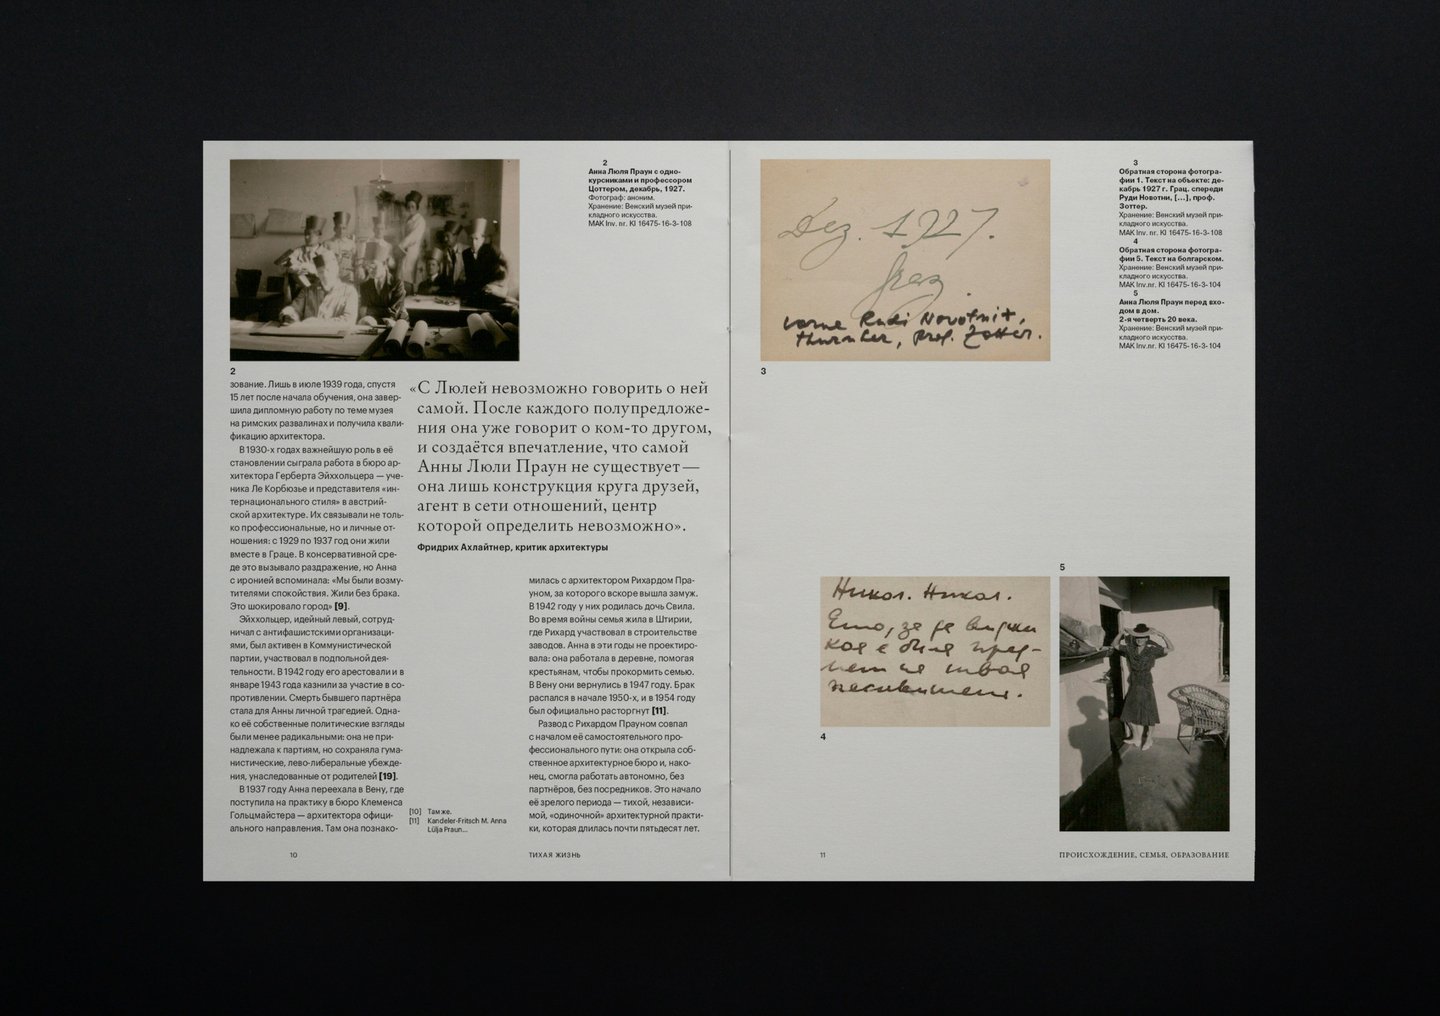 2
Анна Люля Праун с одно-
курсниками и профессором
Цоттером, декабрь, 1927.
Фотограф: аноним.
Хранение: Венский музей при-
кладного искусства.
MAK Inv. nr. KI 16475-16-3-108
2
зование. Лишь в июле 1939 года, спустя
15 лет после начала обучения, она завер-
шила дипломную работу по теме музея
на римских развалинах и получила квали-
фикацию архитектора.
В 1930-х годах важнейшую роль в её
становлении сыграла работа в бюро ар-
хитектора Герберта Эйххольцера — уче-
ника Ле Корбюзье и представителя «ин-
тернационального стиля» в австрий-
ской архитектуре. Их связывали не толь-
ко профессиональные, но и личные от-
ношения: с 1929 по 1937 год они жили
вместе в Граце. В консервативной сре-
де это вызывало раздражение, но Анна
с иронией вспоминала: «Мы были возму-
тителями спокойствия. Жили без брака.
Это шокировало город» [9].
Эйххольцер, идейный левый, сотруд-
ничал с антифашистскими организаци-
ями, был активен в Коммунистической
партии, участвовал в подпольной дея-
тельности. В 1942 году его арестовали и в
январе 1943 года казнили за участие в со-
противлении. Смерть бывшего партнёра
стала для Анны личной трагедией. Одна-
ко её собственные политические взгляды
были менее радикальными: она не при-
надлежала к партиям, но сохраняла гума-
нистические, лево-либеральные убежде-
ния, унаследованные от родителей [19].
В 1937 году Анна переехала в Вену, где
поступила на практику в бюро Клеменса
Гольцмайстера — архитектора офици-
ального направления. Там она познако-
«С Люлей невозможно говорить о ней
самой. После каждого полупредложе-
ния она уже говорит о ком-то другом,
и создаётся впечатление, что самой
Анны Люли Праун не существует —
она лишь конструкция круга друзей,
агент в сети отношений, центр
которой определить невозможно».
Фридрих Ахлайтнер, критик архитектуры
[10] Там же.
[11] Kandeler-Fritsch M. Anna
Lülja Praun...
милась с архитектором Рихардом Пра-
уном, за которого вскоре вышла замуж.
В 1942 году у них родилась дочь Свила.
Во время войны семья жила в Штирии,
где Рихард участвовал в строительстве
заводов. Анна в эти годы не проектиро-
вала: она работала в деревне, помогая
крестьянам, чтобы прокормить семью.
В Вену они вернулись в 1947 году. Брак
распался в начале 1950-х, и в 1954 году
был официально расторгнут [11].
Развод с Рихардом Прауном совпал
с началом её самостоятельно про-
фессионального пути: она открыла соб-
ственное архитектурное бюро и, нако-
нец, смогла работать автономно, без
партнёров, без посредников. Это начало
её зрелого периода — тихой, независи-
мой, «одиночной» архитектурной практи-
ки, которая длилась почти пятьдесят лет.
10
ТИХАЯ ЖИЗНЬ
Dez. 1927.
Graz
vorne Rudi Novotnit,
Thurnher, Prof. Zotter.
3
3
Обратная сторона фотогра-
фии 1. Текст на объекте: де-
кабрь 1927 г. Грац. спереди
Руди Новотни, [...], проф.
Зоттер.
Хранение: Венский музей при-
кладного искусства.
MAK Inv. nr. KI 16475-16-3-108
4
Обратная сторона фотогра-
фии 5. Текст на болгарском.
Хранение: Венский музей при-
кладного искусства.
MAK Inv.nr. KI 16475-16-3-104
5
Анна Люля Праун перед вхо-
дом в дом.
2-я четверть 20 века.
Хранение: Венский музей при-
кладного искусства.
MAK Inv. nr. KI 16475-16-3-104
5
Никол. Никол.
Ето, за да видиш
коя е била пред-
4
11
ПРОИСХОЖДЕНИЕ, СЕМЬЯ, ОБРАЗОВАНИЕ